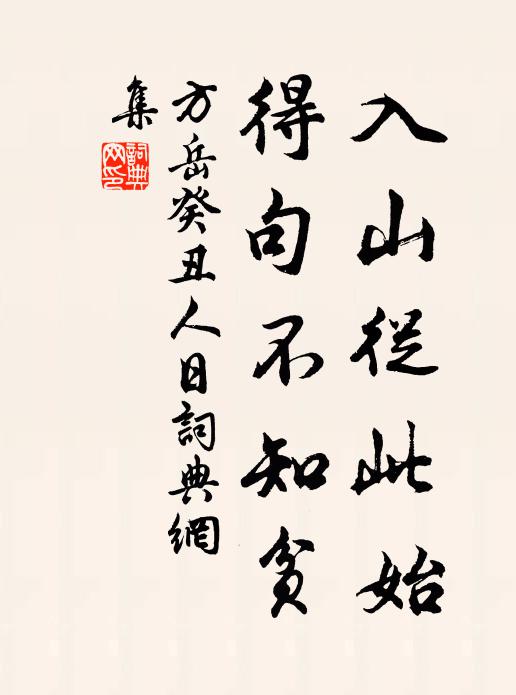 入山從此始
得句不知貧
方岳癸丑人日詞典網
集
詞典
网印